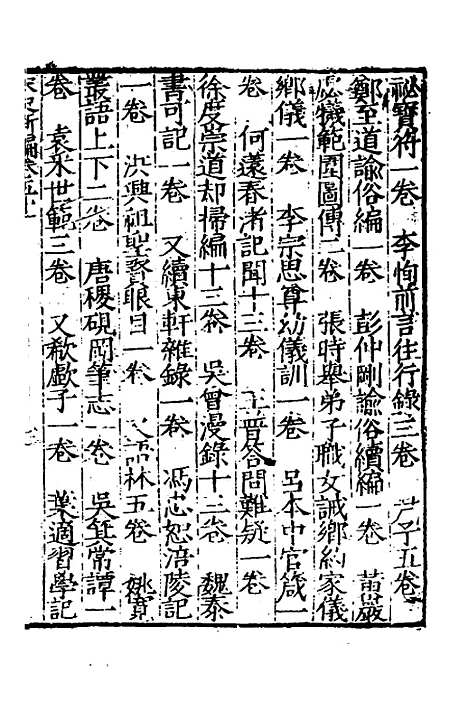 祕寶符一卷 李恂前言往行錄三卷 芦子五卷
鄭至道諭俗編一卷 彭仲剛諭俗續編一卷 苗嚴
虙犧範圍圖傳二卷 張時舉弟子職女誡鄉約家儀
鄉儀一卷 李宗思尊幼儀訓一卷 呂本中官箴一
卷 何薳春渚記聞十三卷 王晋答問難疑一卷
徐度崇道却掃編十三卷 吳曾漫錄十三卷 魏泰
書可記一卷 又續東軒雜錄一卷 馮忠恕涪陵記
一卷 洪興祖聖賢眼目一卷 語林五卷 姚寬
叢語上下二卷 唐稷硯岡筆志一卷 吳箕常譚一
卷 袁采世範三卷 又欷歔子一卷 葉適習學記
宋史新編卷五十